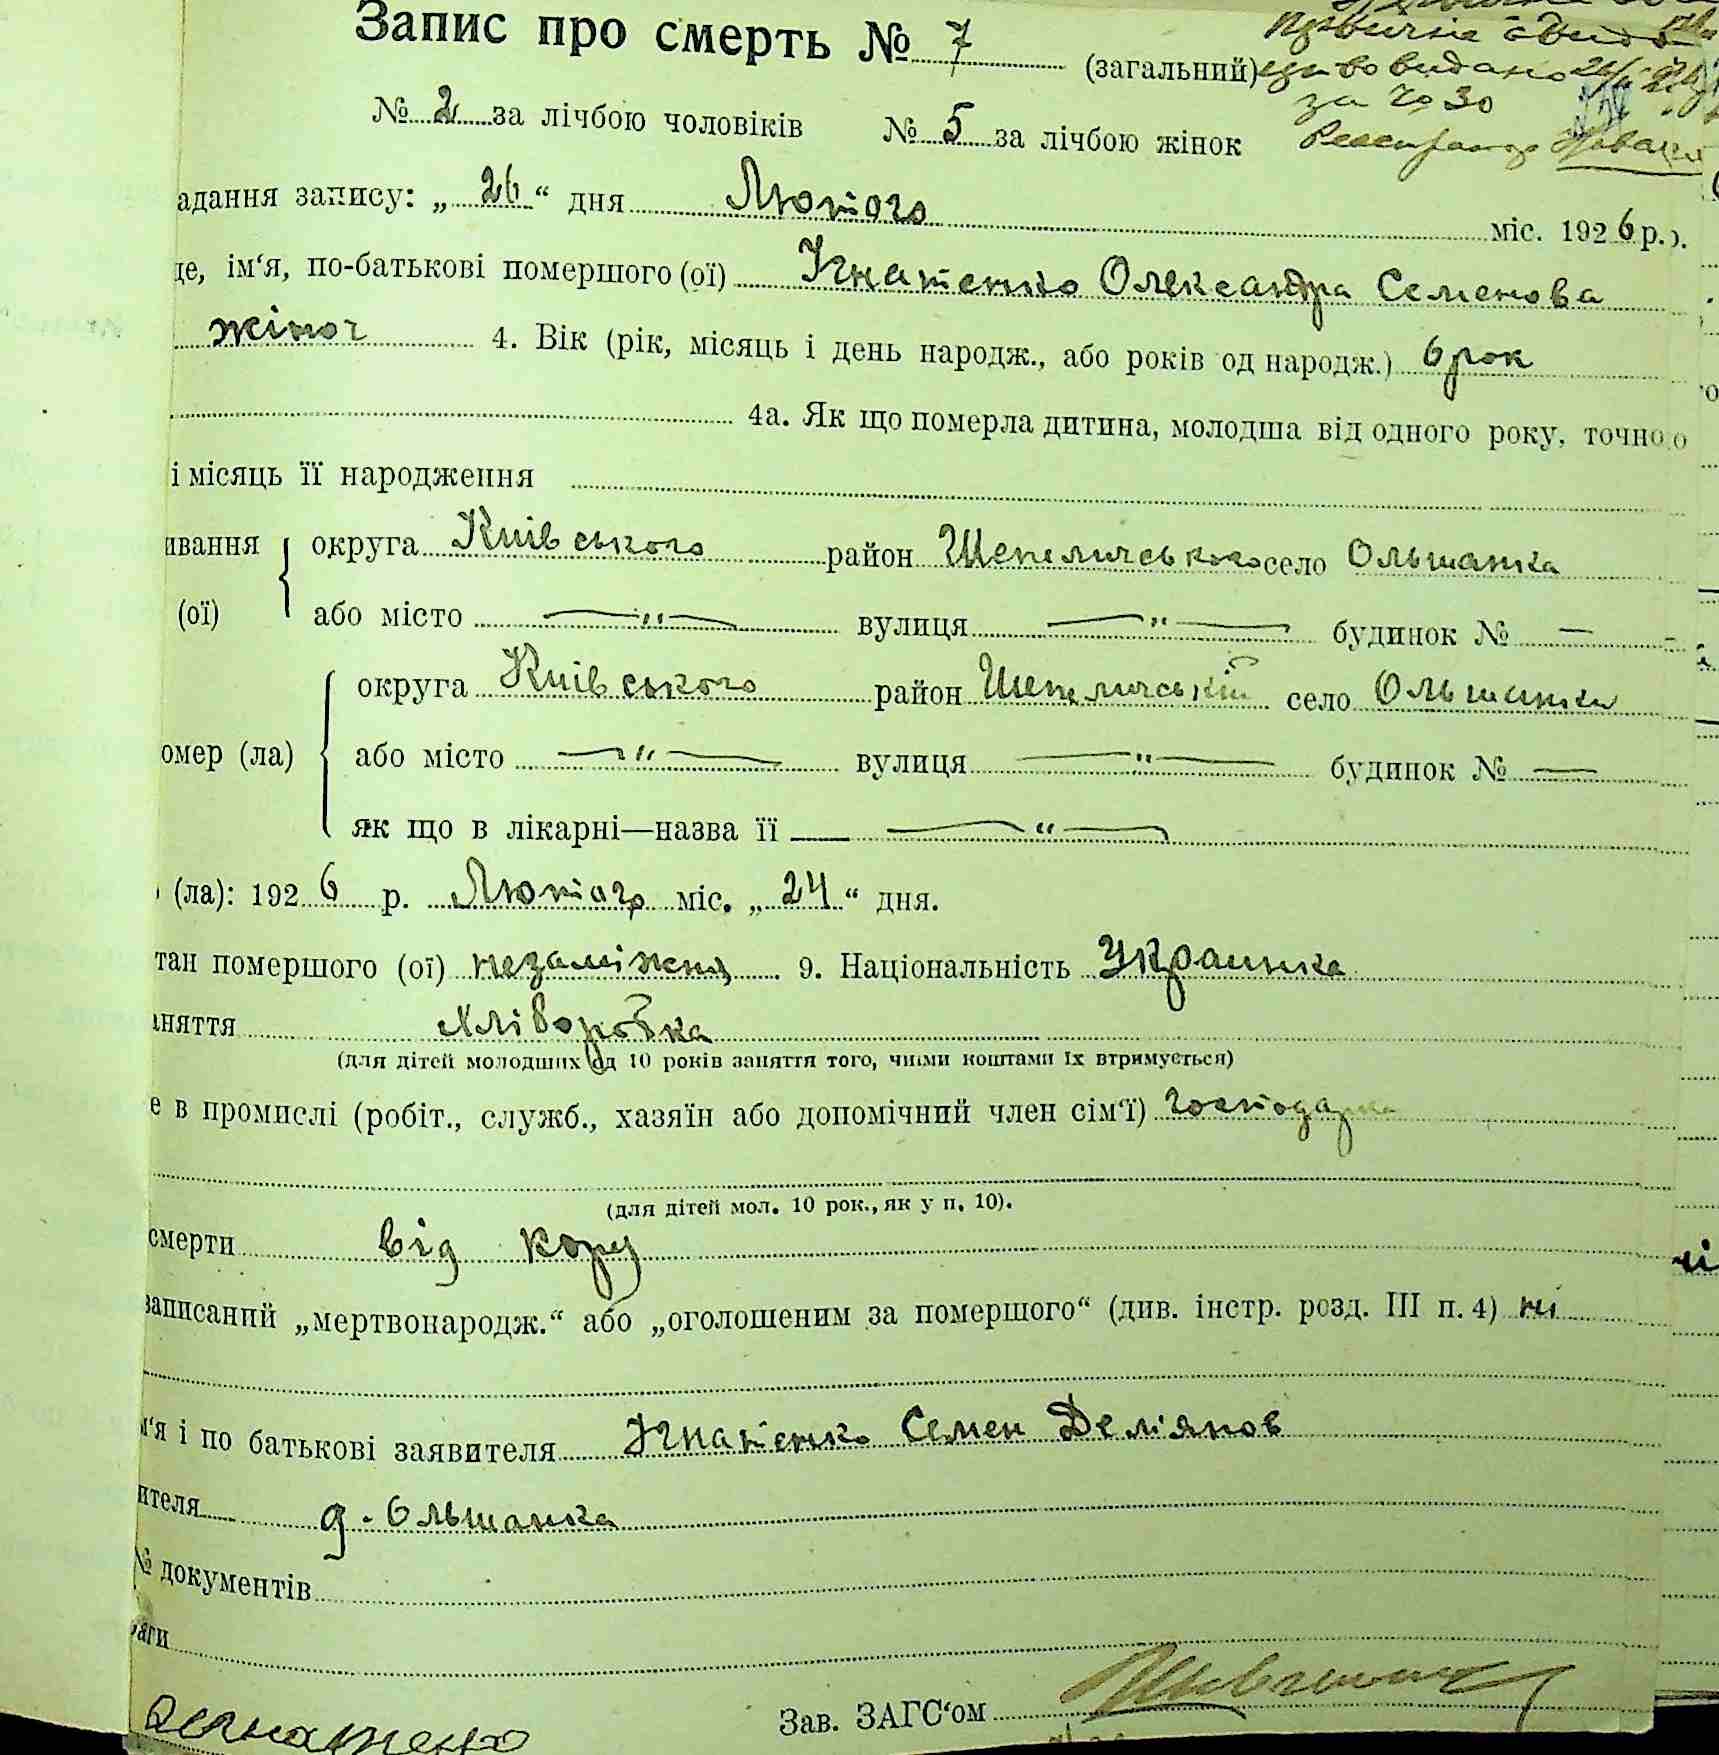 Запис про смерть № 7 (загальний)
видано
за № 30
№ 2 за лічбою чоловіків № 5 за лічбою жінок
адання запису: „ 26 “ дня Лютого міс. 1926 р.
це, ім‘я, по-батькові помершого (ої) Ігнатенко Олександра Семенова
жіноч 4. Вік (рік, місяць і день народж., або років од народж.) 6 рок
4а. Як що померла дитина, молодша від одного року, точно
і місяць її народження
ивання округа Київського район Шепеличського село Ольшанка
(ої) або місто — „ — вулиця — „ — будинок № —
округа Київського район Шепеличський село Ольшанка
омер (ла) або місто — „ — вулиця — „ — будинок № —
як що в лікарні—назва її — “ —
(ла): 1926 р. Лютого міс. „ 24 “ дня.
тан помершого (ої) незаміжня 9. Національність Украинка
аняття Хліборобка
(для дітей молодших од 10 років заняття того, чиїми коштами їх втримується)
е в промислі (робіт., служб., хазяїн або допомічний член сім‘ї) господарка
(для дітей мол. 10 рок., як у п. 10).
смерти від кору
записаний „мертвонародж.“ або „оголошеним за помершого“ (див. інстр. розд. III п. 4) ні
м‘я і по батькові заявителя Ігнатенко Семен Деміянов
ителя д. Ольшанка
№ документів
аги
Зав. ЗАГС‘ом